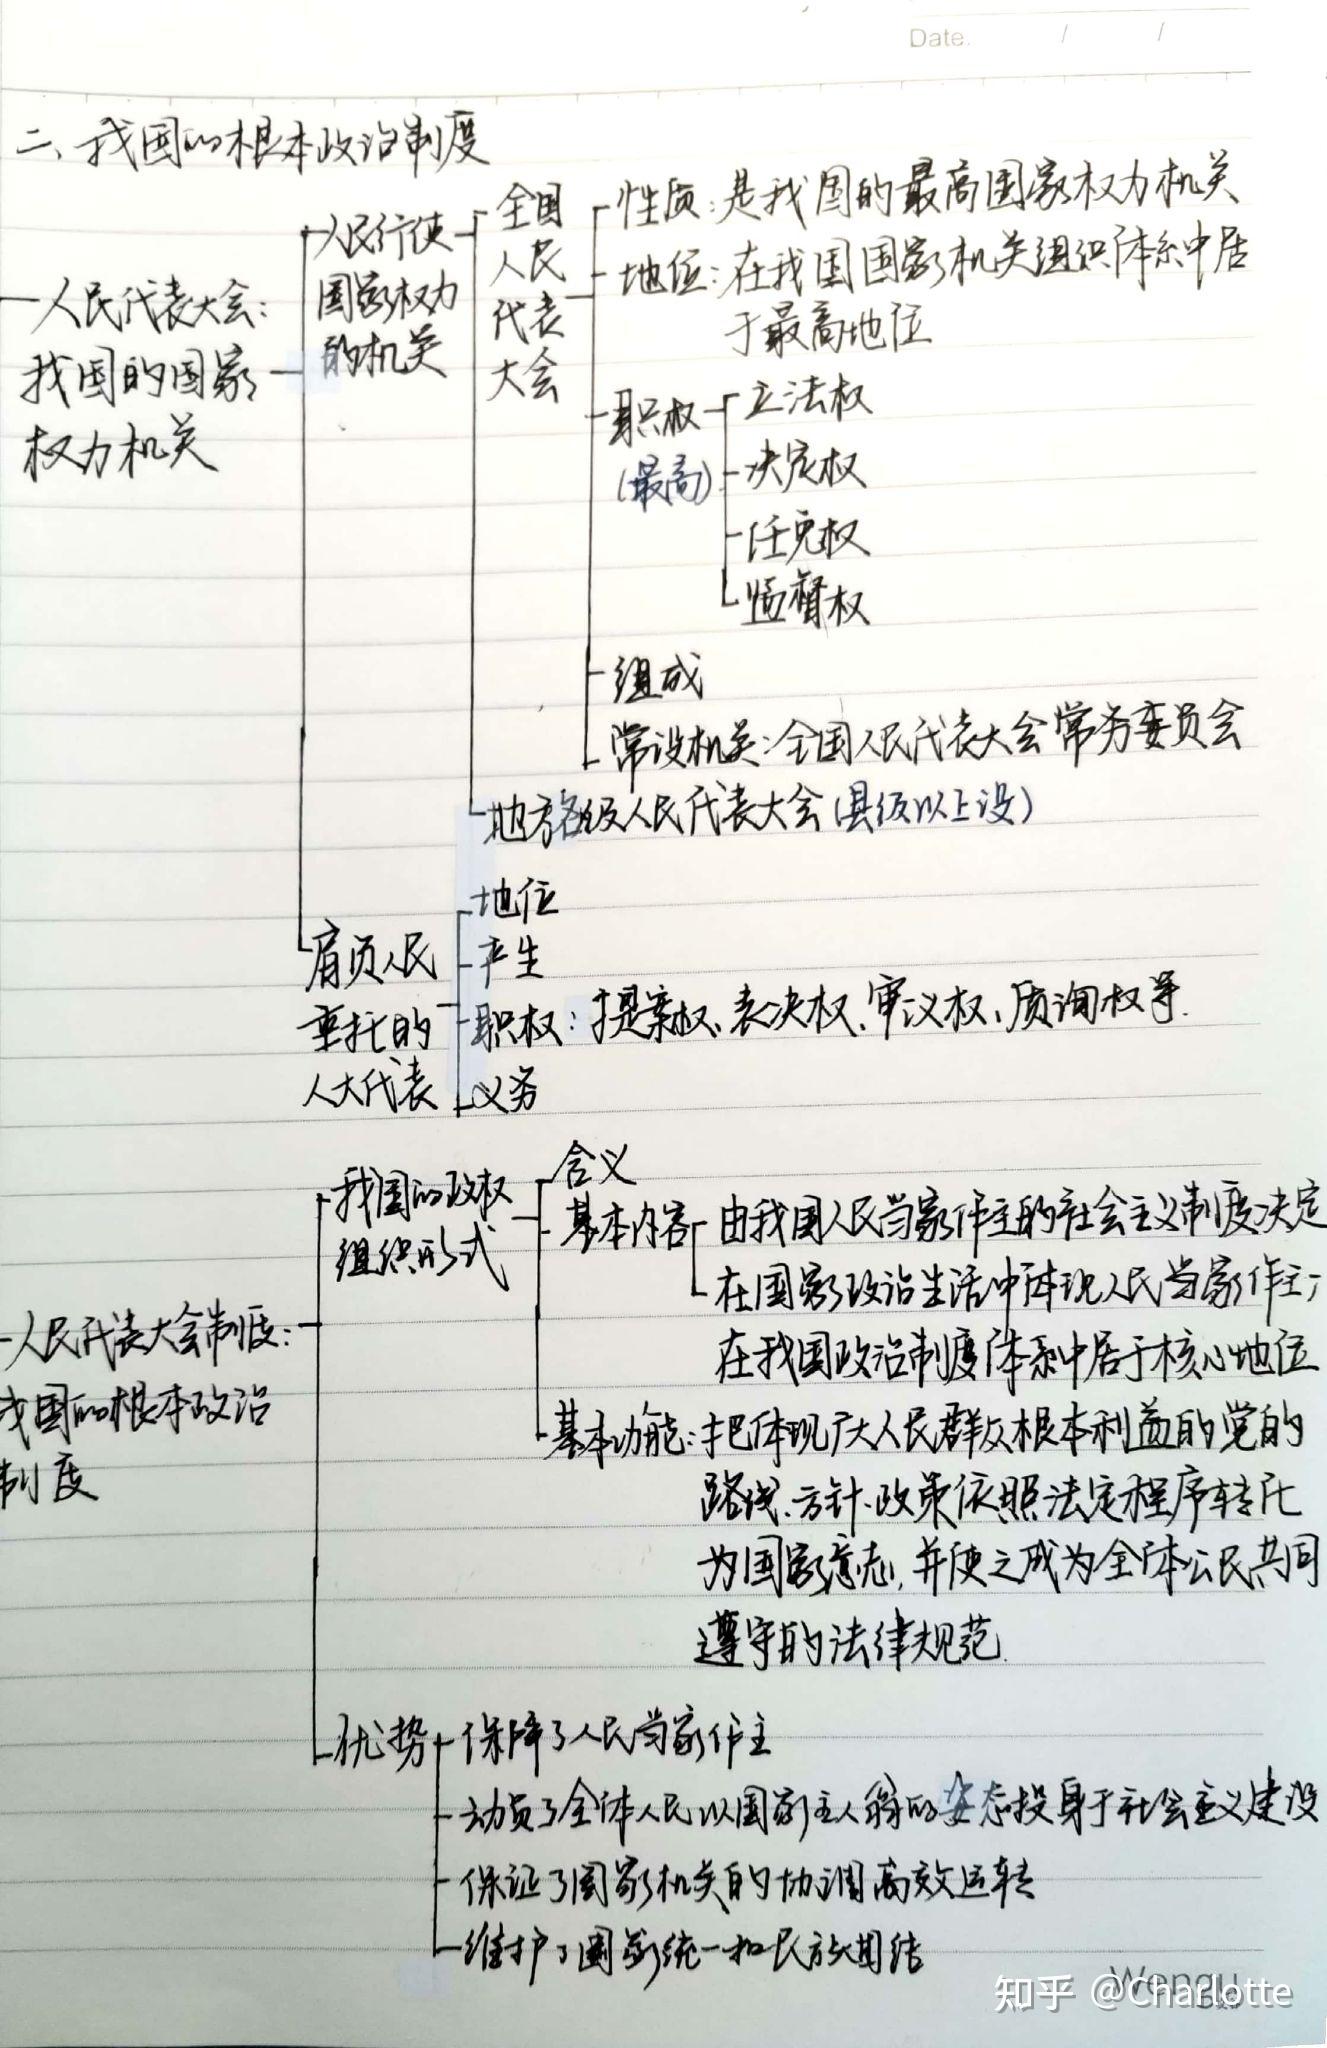 Date. / /
二、我国的根本政治制度
人民代表大会:
我国的国家
权力机关
人民行使
国家权力
的机关
全国
人民
代表
大会
性质:是我国的最高国家权力机关
地位:在我国国家机关组织体系中居
于最高地位
职权
(最高)
立法权
决定权
任免权
监督权
组成
常设机关:全国人民代表大会常务委员会
地方各级人民代表大会(县级以上设)
肩负人民
重托的
人大代表
地位
产生
职权:提案权、表决权、审议权、质询权等.
义务
人民代表大会制度:
我国的根本政治
制度
我国的政权
组织形式
含义
基本内容
由我国人民当家作主的社会主义制度决定
在国家政治生活中体现人民当家作主;
在我国政治制度体系中居于核心地位
基本功能:把体现广大人民群众根本利益的党的
路线、方针、政策依照法定程序转化
为国家意志,并使之成为全体公民共同
遵守的法律规范.
优势
保障了人民当家作主
动员了全体人民以国家主人翁的姿态投身于社会主义建设
保证了国家机关的协调高效运转
维护了国家统一和民族团结
Wengu
知乎 @Charlotte